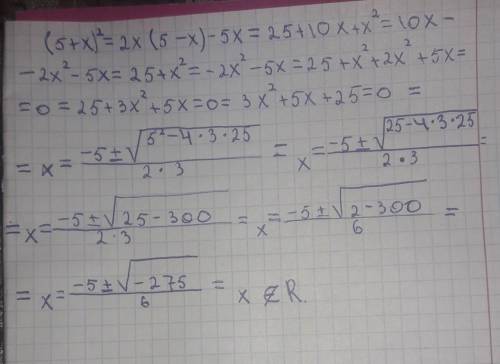 (5+x)²=2x(5-x)-5x=25+10x+x²=10x-
-2x²-5x=25+x²=-2x²-5x=25+x²+2x²+5x=
=0=25+3x²+5x=0=3x²+5x+25=0=
=x=\frac{-5±\sqrt{5²-4·3·25}}{2·3}=x=\frac{-5±\sqrt{25-4·3·25}}{2·3}=
=x=\frac{-5±\sqrt{25-300}}{2·3}=x=\frac{-5±\sqrt{2-300}}{6}=
=x=\frac{-5±\sqrt{-275}}{6}=x∉R.